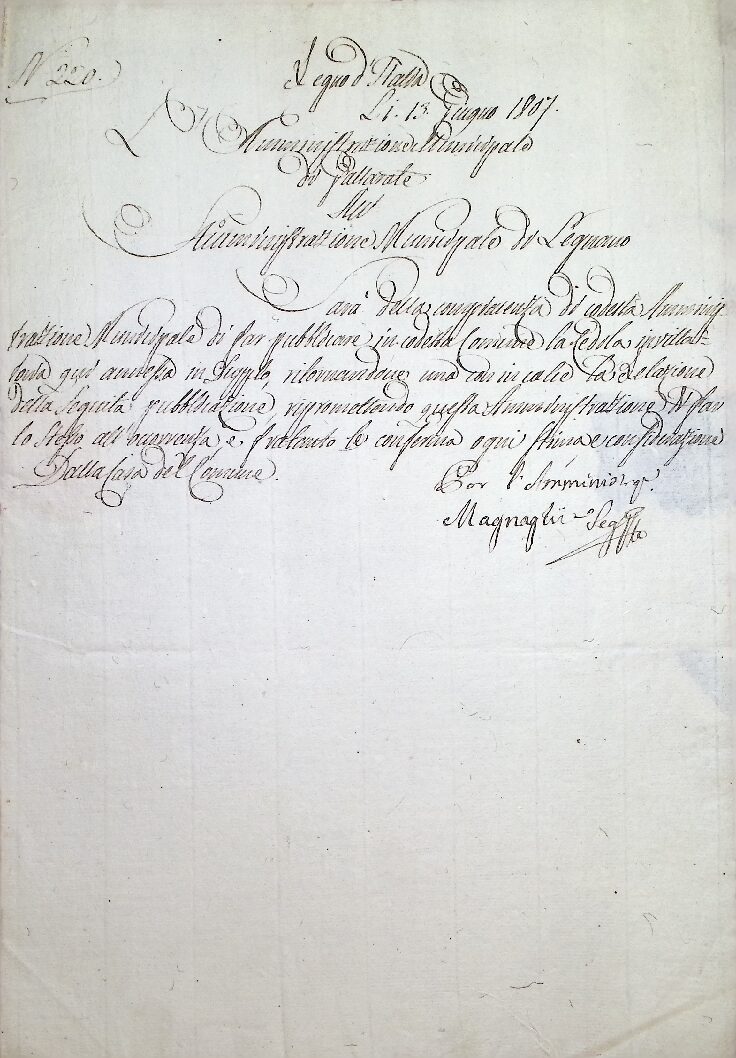 N. 220.
Regno d'Italia
Li. 13. Giugno 1807.
L' Amministrazione Municipale
di Gallarate
All'
Amministrazione Municipale di Legnano
Sarà della compiacenza di codesta Amminis
trazione Municipale di far pubblicare in codesta Comune la Cedola invitta-
toria qui annessa in Dupplo, ritornandone una con in calce la Relazione
della seguita pubblicazione, ripromettendo questa Amministrazione di far
lo stesso all'occorrenza e frattanto le conferma ogni stima e considerazione
Dalla Casa del Comune.
Per l'Amminist.
Magnaghi Seg